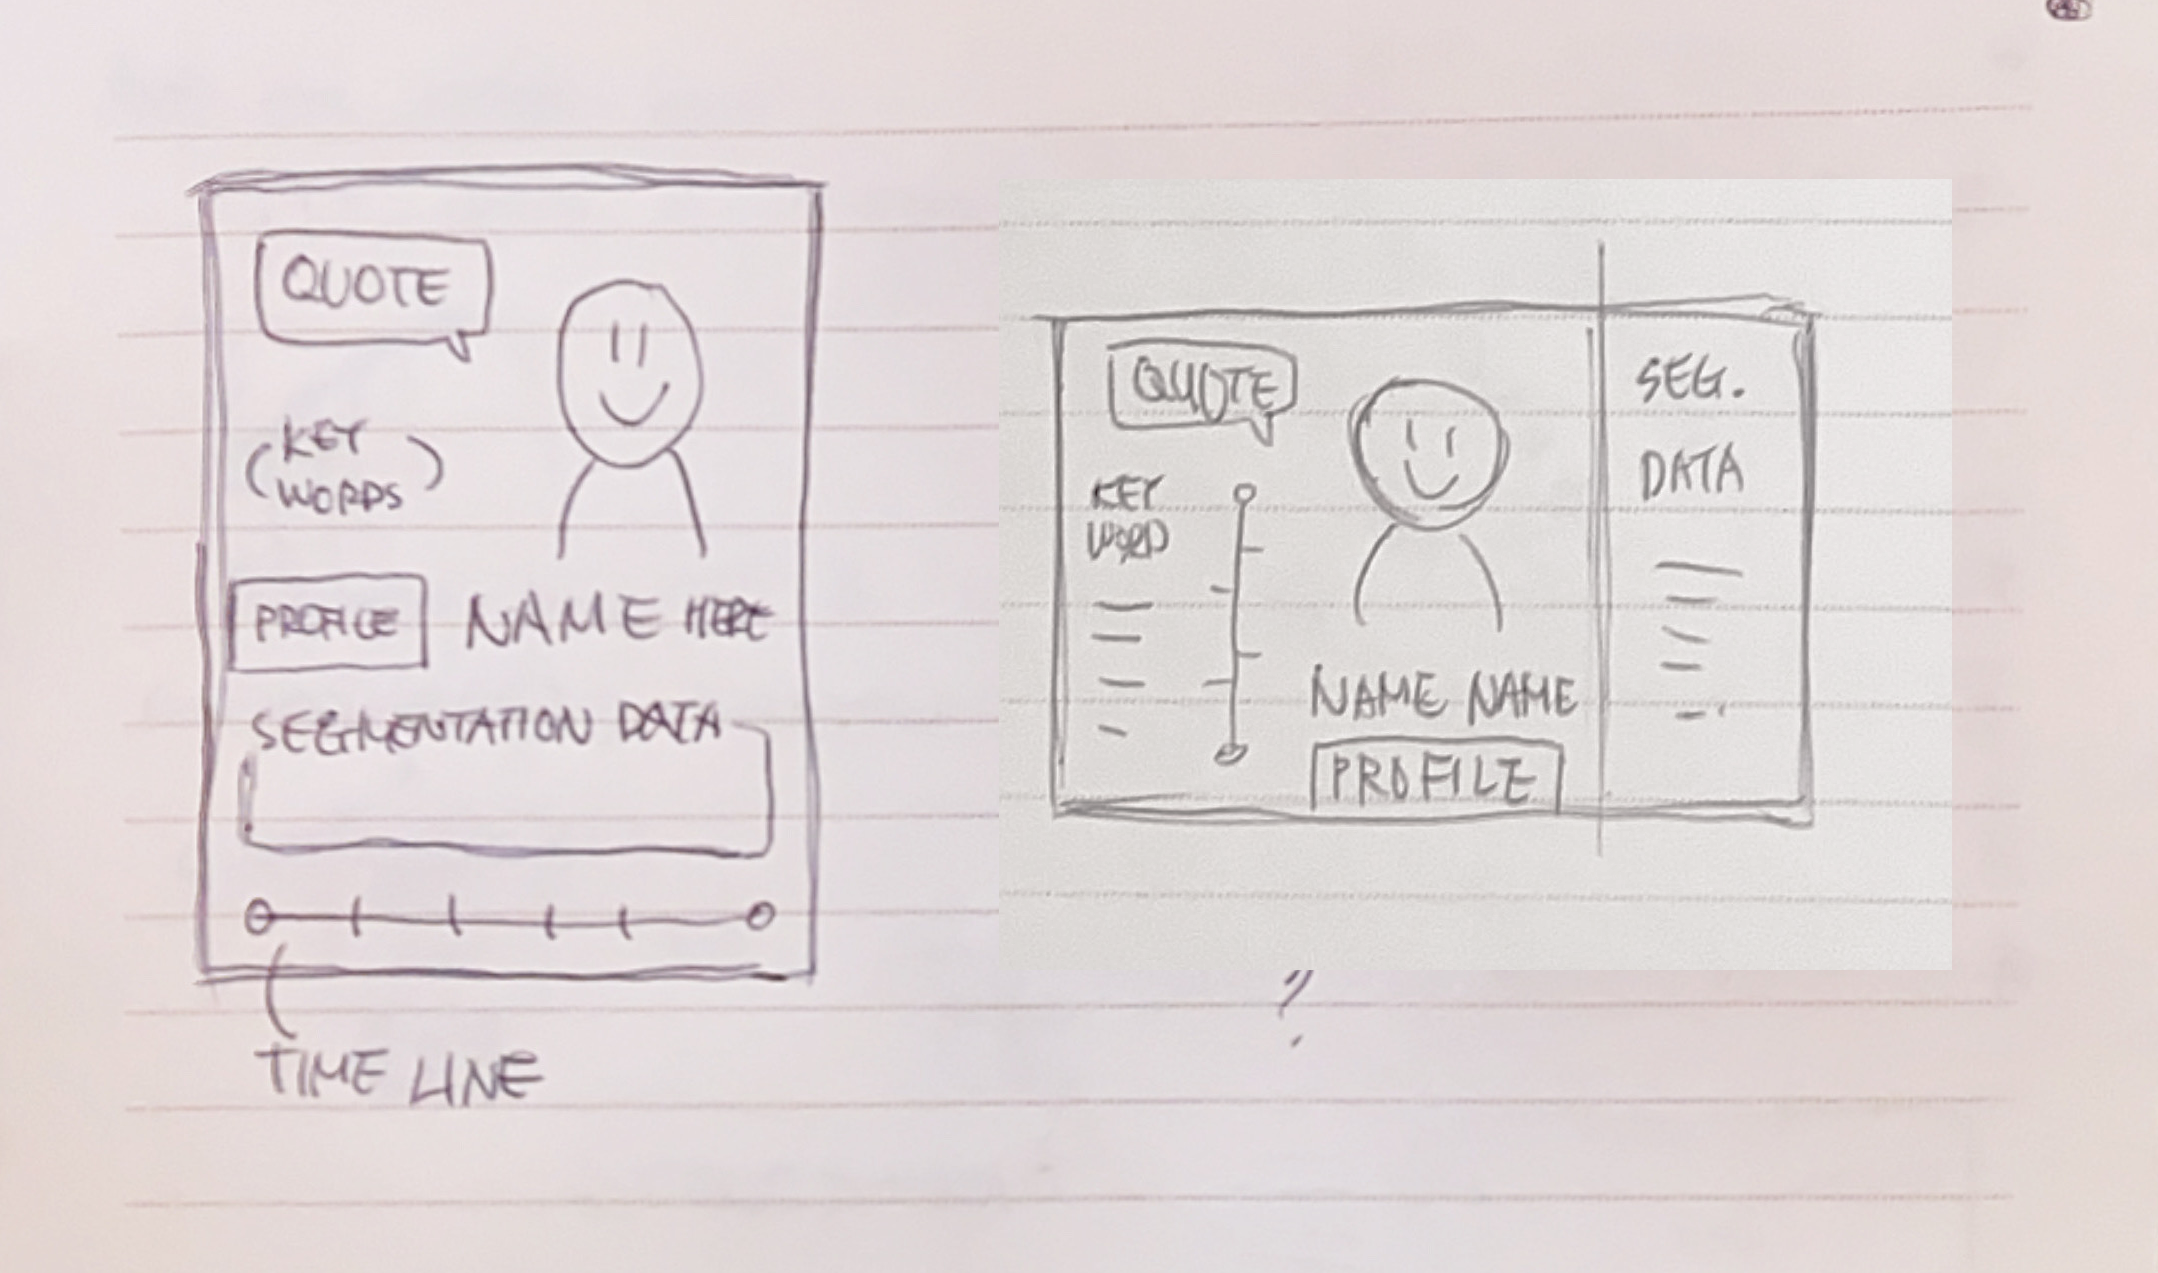 QUOTE
(KEY
WORDS)
PROFILE
NAME HERE
SEGMENTATION DATA
TIME LINE
QUOTE
KEY
WORD
NAME NAME
PROFILE
SEG.
DATA
?